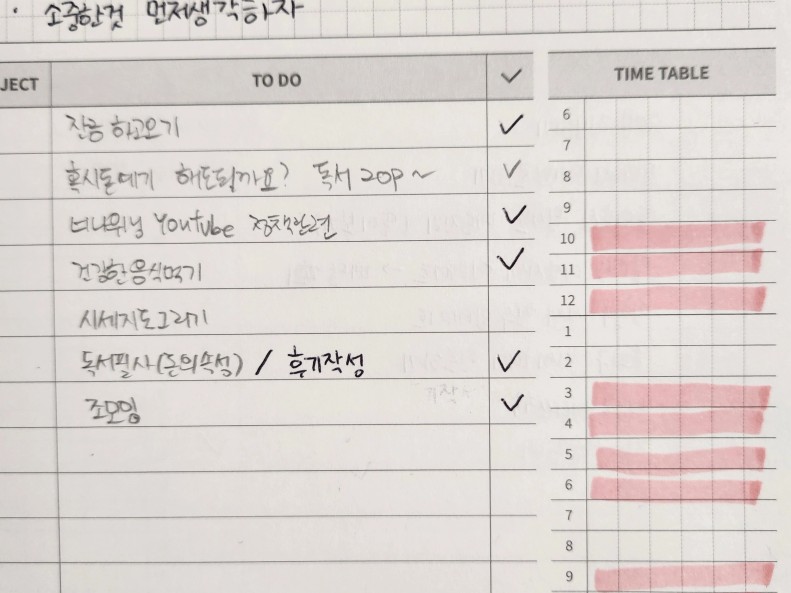 · 소중한것 먼저생각하자
JECT TO DO ✓ TIME TABLE
잔금 하고오기 ✓
혹시돈얘기 해도될까요? 독서 20P~ ✓
너나위님 YouTube 정책의견 ✓
건강한음식먹기 ✓
시세지도그리기
독서필사(돈의속성) / 후기작성 ✓
조모임 ✓
6
7
8
9
10
11
12
1
2
3
4
5
6
7
8
9